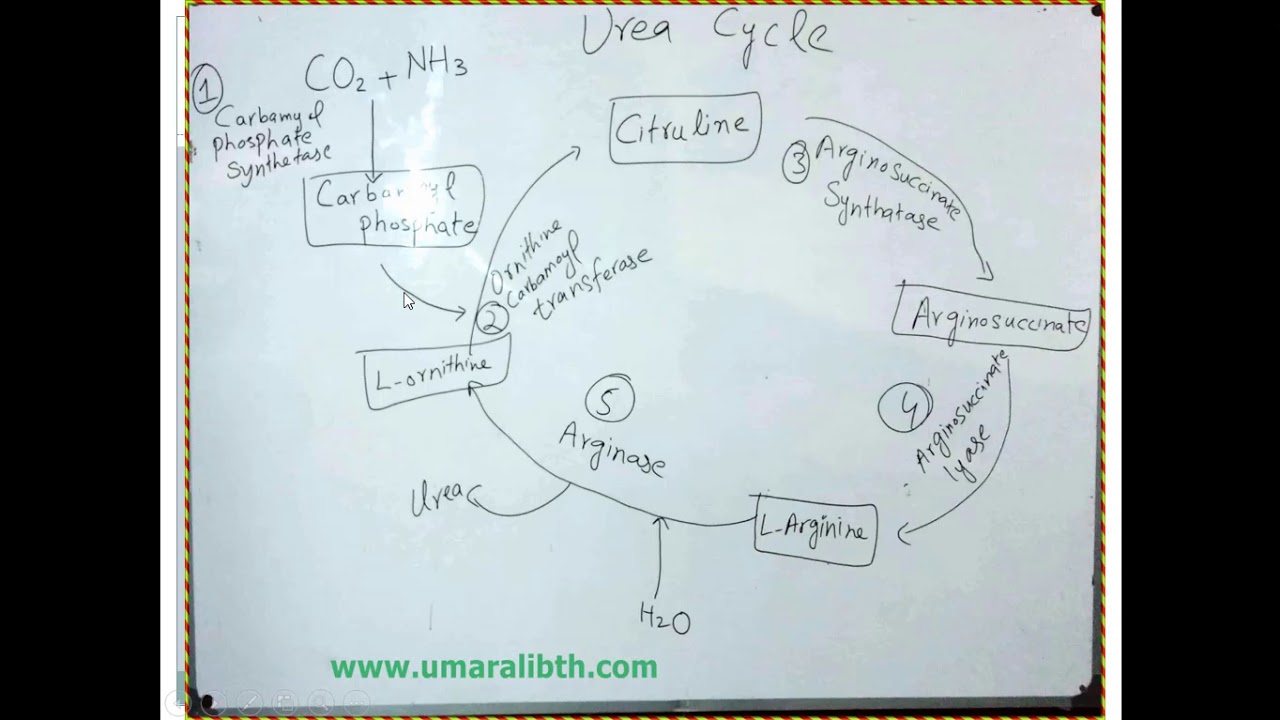 Urea Cycle
CO2 + NH3
1
Carbamyl
phosphate
Synthetase
Carbamyl
phosphate
Citruline
3
Arginosuccinate
Synthatase
2
Ornithine
Carbamoyl
transferase
L-ornithine
Arginosuccinate
4
Arginosuccinate
lyase
5
Arginase
Urea
L-Arginine
H2O
www.umaralibth.com